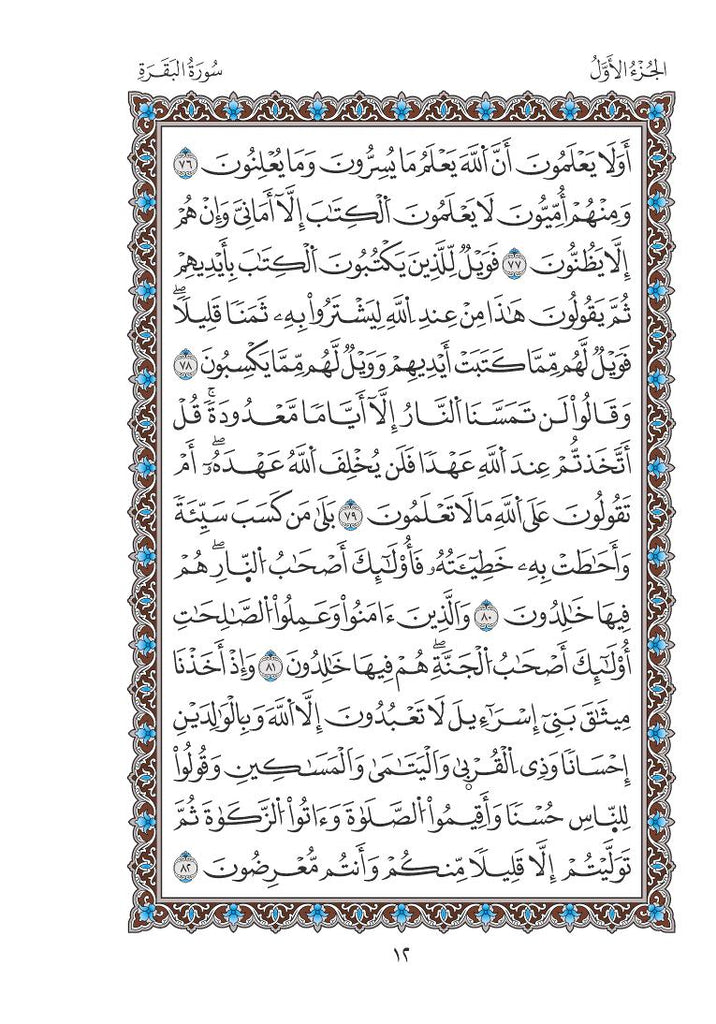 الجُزْءُ الأَوَّلُ
سُورَةُ البَقَرَةِ
أَوَلَا يَعْلَمُونَ أَنَّ اَ۬للَّهَ يَعْلَمُ مَا يُسِرُّونَ وَمَا يُعْلِنُونَ ٧٦
وَمِنْهُمْ أُمِّيُّونَ لَا يَعْلَمُونَ اَ۬لْكِتَٰبَ إِلَّا أَمَانِيَّ وَإِنْ هُمْ
إِلَّا يَظُنُّونَ ٧٧ فَوَيْلٌ لِّلَّذِينَ يَكْتُبُونَ اَ۬لْكِتَٰبَ بِأَيْدِيهِمْ
ثُمَّ يَقُولُونَ هَٰذَا مِنْ عِندِ اِ۬للَّهِ لِيَشْتَرُواْ بِهِۦ ثَمَنًا قَلِيلًاۖ
فَوَيْلٌ لَّهُم مِّمَّا كَتَبَتْ أَيْدِيهِمْ وَوَيْلٌ لَّهُم مِّمَّا يَكْسِبُونَ ٧٨
وَقَالُواْ لَن تَمَسَّنَا اَ۬لنَّارُ إِلَّا أَيَّامًا مَّعْدُودَةًۚ قُلْ
أَتَّخَذتُّمْ عِندَ اَ۬للَّهِ عَهْدًا فَلَن يُخْلِفَ اَ۬للَّهُ عَهْدَهُۥٓۖ أَمْ
تَقُولُونَ عَلَى اَ۬للَّهِ مَا لَا تَعْلَمُونَ ٧٩ بَلَىٰ مَن كَسَبَ سَيِّئَةً
وَأَحَٰطَتْ بِهِۦ خَطِيٓـَٔتُهُۥ فَأُوْلَٰٓئِكَ أَصْحَٰبُ اُ۬لنّ۪ارِۖ هُمْ
فِيهَا خَٰلِدُونَ ٨٠ وَالَّذِينَ ءَامَنُواْ وَعَمِلُواْ اُ۬لصَّٰلِحَٰتِ
أُوْلَٰٓئِكَ أَصْحَٰبُ اُ۬لْجَنَّةِۖ هُمْ فِيهَا خَٰلِدُونَ ٨١ وَإِذْ أَخَذْنَا
مِيثَٰقَ بَنِيٓ إِسْرَآءِيلَ لَا تَعْبُدُونَ إِلَّا اَ۬للَّهَ وَبِالْوَٰلِدَيْنِ
إِحْسَانًا وَذِي اِ۬لْقُرْب۪ىٰ وَالْيَتَٰمَىٰ وَالْمَسَٰكِينِ وَقُولُواْ
لِلنّ۪اسِ حُسْنًا وَأَقِيمُواْ اُ۬لصَّلَوٰةَ وَءَاتُواْ اُ۬لزَّكَوٰةَ ثُمَّ
تَوَلَّيْتُمْ إِلَّا قَلِيلًا مِّنكُمْ وَأَنتُم مُّعْرِضُونَ ٨٢
١٢